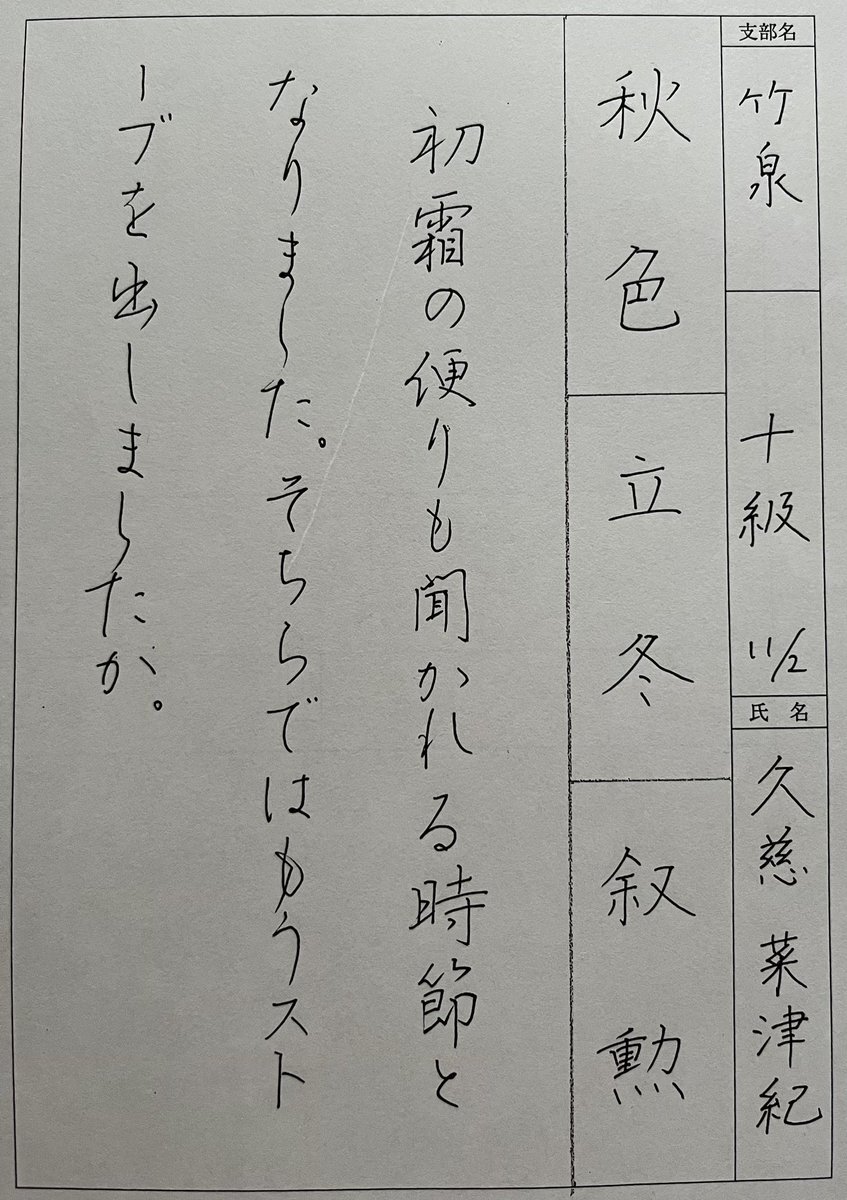 支部名
竹泉
十級 11/2
氏名
久慈 菜津紀
秋色
立冬
叙勲
初霜の便りも聞かれる時節と
なりました。そちらではもうスト
ーブを出しましたか。